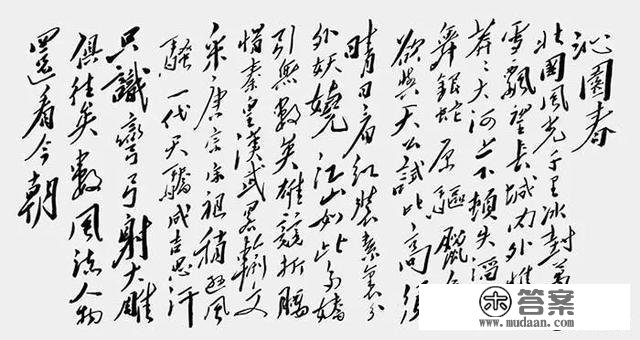 沁園春
北國風光千里冰封萬
雪飄望長城內外惟
莽々大河上下頓失滔
舞銀蛇原驅臘
欲與天公試比高須
晴日看紅裝素裹分
外妖嬈江山如此多嬌
引無數英雄競折腰
惜秦皇漢武略輸文
采唐宗宋祖稍遜風
騷一代天驕成吉思汗
只識彎弓射大雕
俱往矣數風流人物
還看今朝
答案
www.mudaan.com